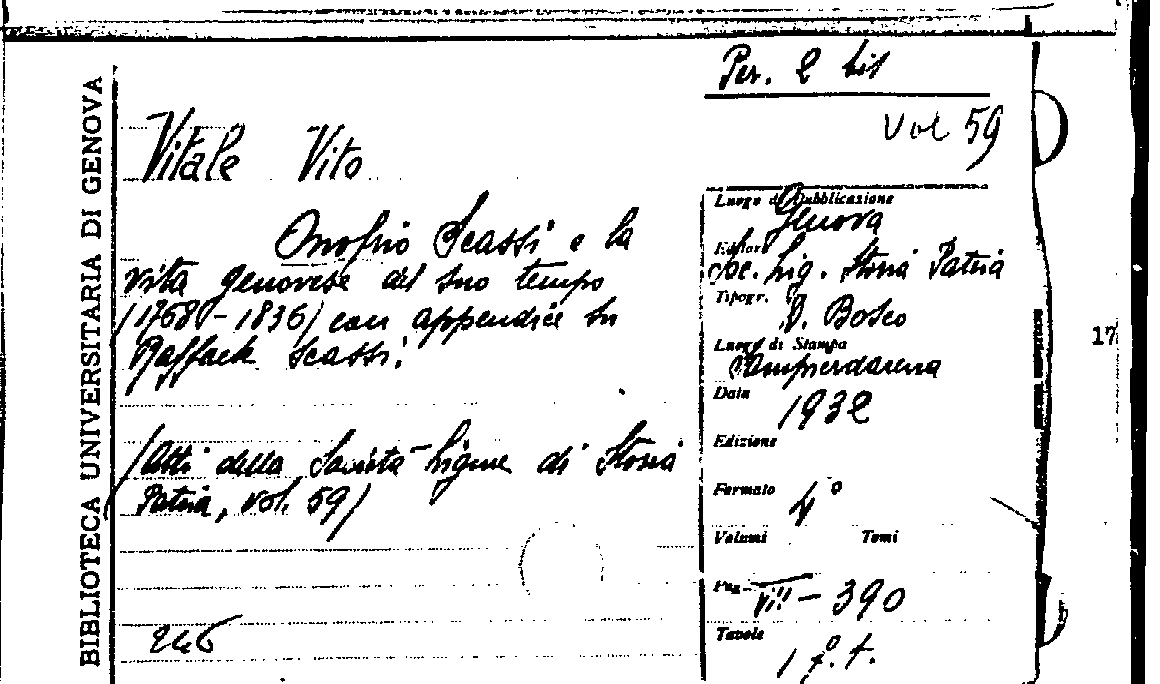 BIBLIOTECA UNIVERSITARIA DI GENOVA
Per. 2 bis
Vol 59
Vitale Vito
Onofrio Scassi e la
vita genovese del suo tempo
/1768 - 1836/ con appendice su
Raffaele Scassi.
/Atti della Società Ligure di Storia
Patria, vol. 59/
246
Luogo di Pubblicazione
Genova
Editore
Soc. Lig. Storia Patria
Tipogr.
D. Bosco
Luogo di Stampa
Sampierdarena
Data
1932
Edizione
Formato
4°
Volumi Tomi
Pag.
VIII - 390
Tavole
1 f. t.
17